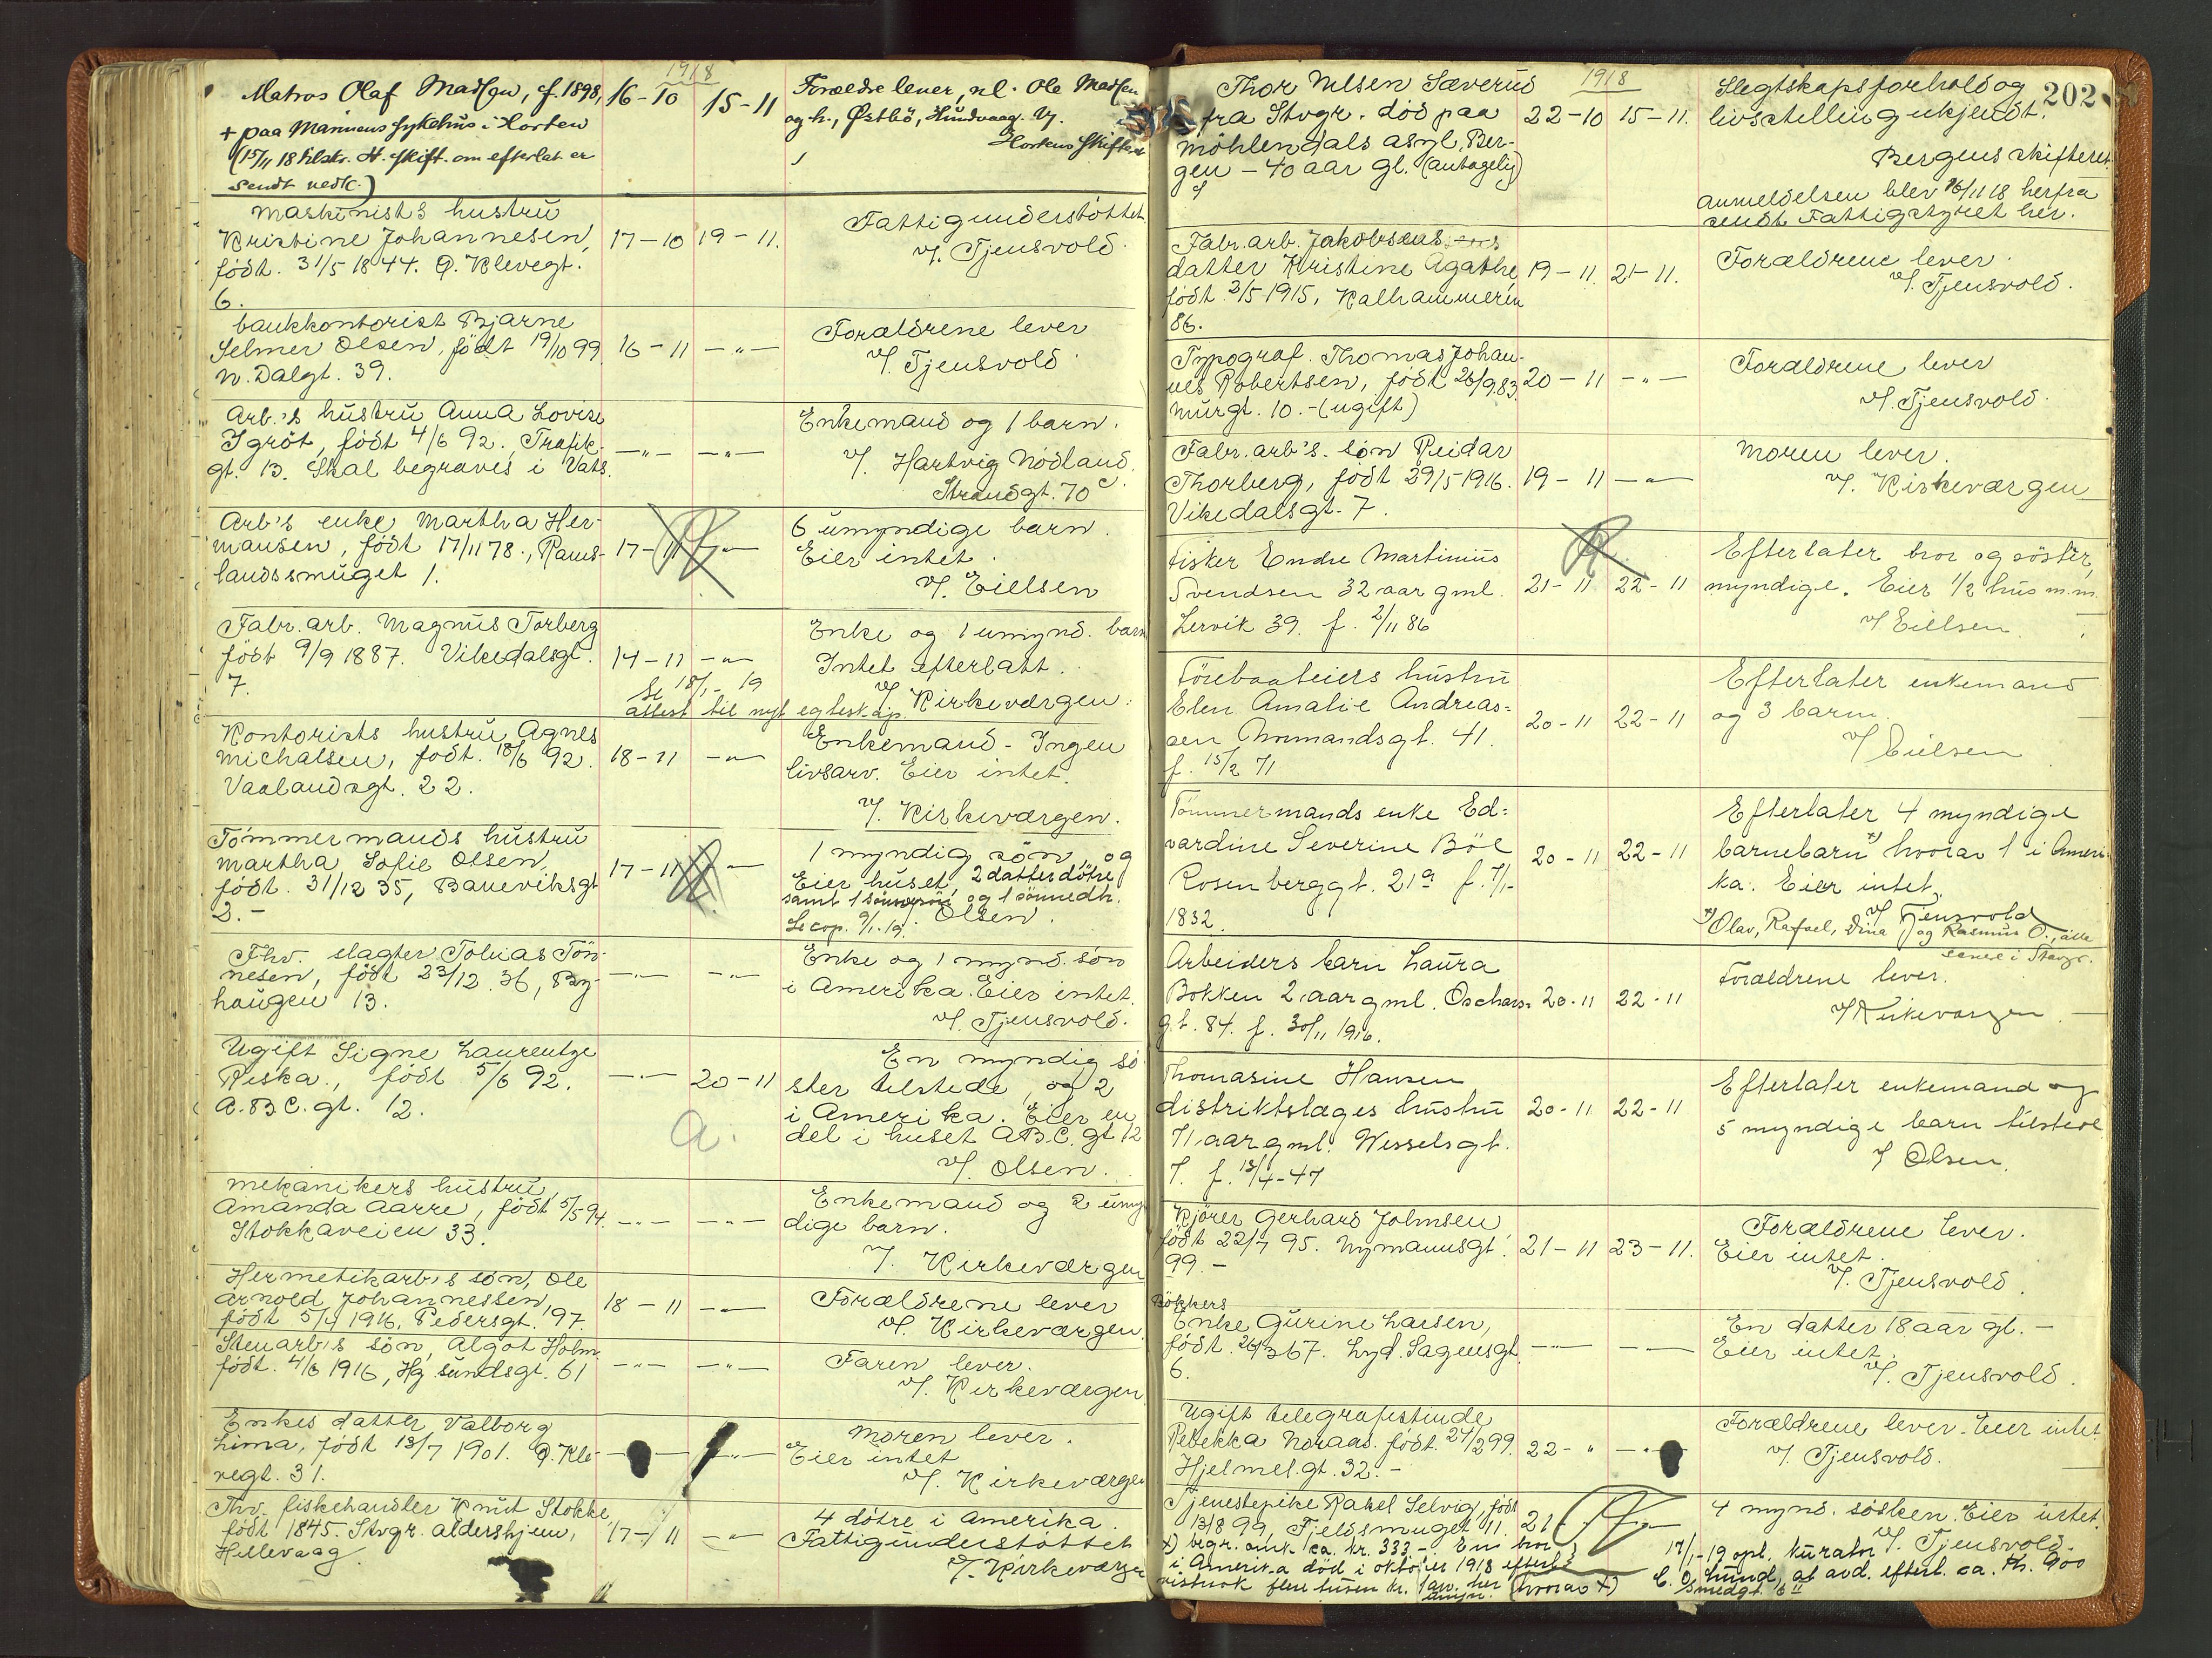 1918
Matros Olaf Madsen, f. 1898, 16-10 15-11 Forældre lever, nl. Ole Madsen
+ paa Marinens sykehus i Horten og h., Østbö, Hundvaag. V.
(15/11 18 Skift. om efterlat er Hortens Skifteret
sendt nedk.)
Maskinists hustru Fattigunderstöttet
Kristine Johannesen, 17-10 19-11. v/. Tjensvold.
födt. 31/5 1844. Ø. Klevegt.
6.
bankkontorist Bjarne Forældrene lever
Selmer Olsen, födt 19/10 99 16-11 -"- v/. Tjensvold
N. Dalgt. 39.
Arb.'s hustru Anna Lovise Enkemand og 1 barn.
Igröt, födt 4/6 92, Trafik- -"- -"- v/. Hartvig Nödland,
gt. 13. Skal begraves i Vats. Strandgt. 70
Arb's enke Martha Her- 6 umyndige barn.
mansen, födt 17/11 78., Rams- 17-11 -"- Eier intet.
landssmuget 1. v/. Eiellsen
Fabr. arb. Magnus Torberg Enke og 1 umynd. barn
födt 9/9 1887. Vikedalsgt. 14-11 -"- Intet efterlatt.
7. Se 18/1-19 v/ Kirkeværgen.
attest til nyt egteskap.
Kontorists hustru Agnes Enkemand - Ingen
Michalsen, födt. 18/6 92. 18-11 -"- livsarv. Eier intet.
Vaalandsgt. 22. v/. Kirkeværgen.
Tömmermands hustru 1 myndig sön, og
Martha Sofie Olsen, 17-11 -"- Eier huset, 2 datterdötre
födt. 31/12 35, Baneviksgt samt 1 sönnesön og 1 sönnedtr.
2.- Se cop. 9/1-19. Olsen.
Fhv. slagter Tobias Tön- Enke og 1 mynd. sön
nesen, födt 23/12 36, By- -"- -"- i Amerika. Eier intet.
haugen 13. v/. Tjensvold.
Ugift Signe Laurentze En myndig sö-
Riska., födt 5/6 92. -"- 20-11 ster tilstede, og 2
A.B.C. gt. 12. i Amerika. Eier en
a. del i huset A.B.C. gt 12
v/. Olsen.
Mekanikers hustru, Enkemand og 2 umyn
Amanda Aarre, födt 5/5 94. -"- -"- dige barn.
Stokkaveien 33. v/. Kirkeværgen
Hermetikarb's sön, Ole
Arnold Johannessen, 18-11 -"- Forældrene lever
födt 5/4 1916, Pedersgt. 97. v/. Kirkeværgen.
Stenarb's sön, Algot Holm
födt. 4/6 1916, Hg sundsgt. 61 -"- -"- Faren lever.
v/. Kirkeværgen
Enkes datter Valborg Moren lever.
Lima, födt 13/7 1901. Ø. Kle- Eier intet
vegt. 31. v/. Kirkeværgen
Fhv. fiskehandler Knut Stokke 4 dötre i Amerika.
födt 1845. Stvgr. aldershjem, 17-11 -"- Fattigunderstöttet
Hillevaag. v/. Kirkeværgen
202
1918
Thor Nilsen Sæverud Slegtskapsforhold og
fra Stvgr. död paa 22-10 15-11. livsstelling ukjendt.
Möhlendals asyl, Ber- Bergens skifteret.
gen - 40 aar gl. (antagelig) anmeldelsen blev 16/11 18 herfra
sendt Fattigstyret her.
Fabr. arb. Jakobsens
datter Kristine Agathe, 19-11. 21-11. Forældrene lever.
födt 2/5 1915, Kalhammeren v/. Tjensvold.
86.
Typograf. Thomas Johan- Forældrene lever
nes Robertsen, födt 26/9.83. 20-11 -"- v/. Tjensvold.
Murgt. 10.-(ugift)
Fabr. arb's. sön Reidar Moren lever.
Thorberg, födt 29/5 1916. 19-11 -"- v/. Kirkeværgen
Vikedalsgt. 7.
Fisker Endre Martinius Efterlater bror og söster,
Svendsen 32 aar gml. 21-11 22-11 myndige. Eier 1/2 hus m.m.
Lervik 39. f. 2/11 86 v/ Eiellsen.
Förebaateiers hustru Efterlater enkemand
Elen Amalie Andreas- 20-11 22-11 og 3 barn.
sen Normandsgt. 41. v/ Eiellsen
f. 15/2 71
Tömmermands enke Ed- Efterlater 4 myndige
vardine Severine Böe 20-11 22-11 barnebarn x) hvorav 1 i Ameri-
Rosenberggt. 21a f. 7/1- ka. Eier intet.
1832. v/ Tjensvold
x) Olav, Rafael, Dina og Rasmus O., alle
senere i Stavgr.
Arbeiders barn Laura Forældrene lever.
Bokken 2 aar gml. Oschars- 20-11 22-11 v/ Kirkeværgen
gt. 84. f. 30/11 1916.
Thomasine Hansen Efterlater enkemand og
distriktslæges hustru 20-11 22-11 5 myndige barn tilstede
71 aar gml. Wesselsgt. v/ Olsen.
7. f. 13/4-47
Kjörer Gerhard Johnsen Forældrene lever.
födt 22/7 95. Nymannsgt. 21-11 23-11. Eier intet.
99.- v/. Tjensvold.
Bökkers
Enke Gurine Larsen, En datter 18 aar gl.-
födt. 26/3 67. Lyd. Sagensgt. -"- -"- Eier intet.
6. v/. Tjensvold.
Ugift telegrafistinde Forældrene lever. Eier intet
Rebekka Noraas. födt. 27/2 99. 22-" -"- v/. Tjensvold.
Hjelmel. gt. 32.-
Tjenestepike Rakel Selvig, födt 4 mynd. sösken. Eier intet.
13/8 99, Fjeldsmuget 11. 21- v/. Tjensvold.
x) begr. omk ca. kr. 333.- Em bror 17/1-19 opl. kurator
i Amerika död i oktober 1918 efterl. C. O. Lund, at avd. efterl. ca. kr. 900
vistnok flere tusen kr. 1 arv. her (hvorav x) Smedgt. 6 II